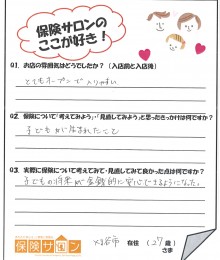 保険サロンの
ここが好き！
Q1. お店の雰囲気はどうでしたか？（入店前と入店後）
とてもオープンで入りやすい
Q2. 保険について「考えてみよう」・「見直してみよう」と思ったきっかけは何ですか？
子どもが生まれたこと
Q3. 実際に保険について考えてみて・見直してみて良かった点は何ですか？
子どもの将来が金銭的に安心できるようになった。
保険サロン
刈谷市 在住 （27歳）
さま